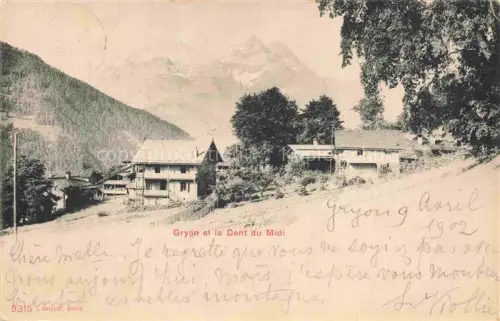 Gryon et la Dent du Midi
Gryon 9 Avril
1902
Chère Melle, Je regrette que vous ne soyiez pas avec
nous aujourd'hui, mais j'espère vous montrer
bientôt ces belles montagnes
5215